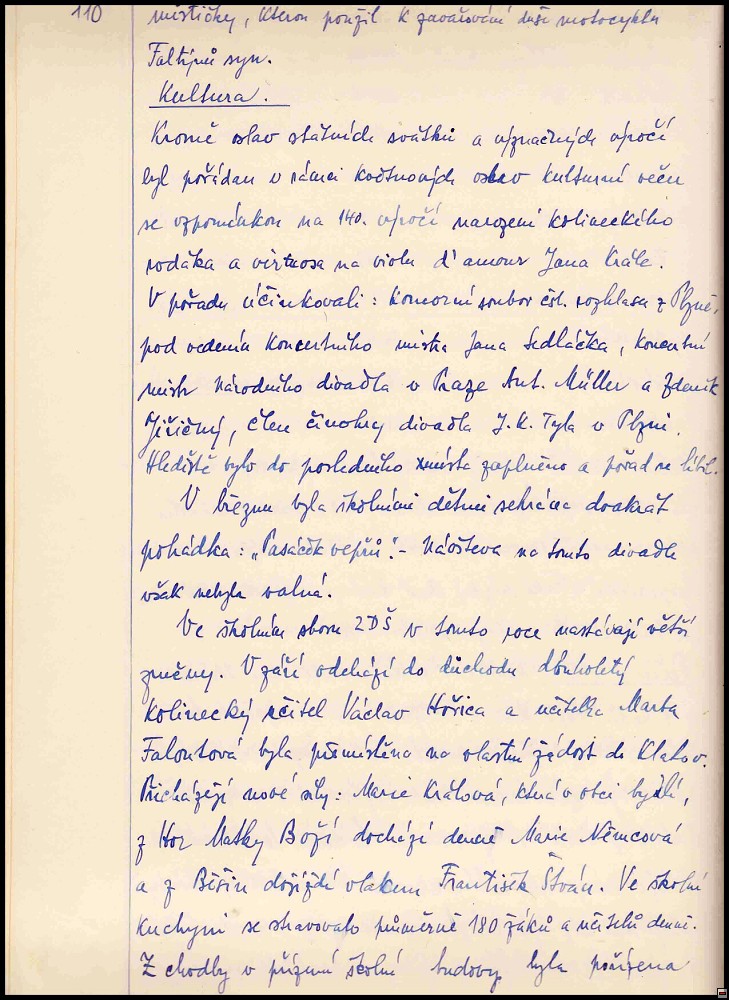 110
místničky, kterou použil k zavařování duší motocyklu
Faltýnů syn.
Kultura.
Kromě oslav státních svátků a význačných výročí
byl pořádán v rámci květnových oslav kulturní večer
se vzpomínkou na 140. výročí narození kolineckého
rodáka a virtuosa na violu d'amour Jana Krále.
V pořadu účinkovali: Komorní soubor čsl. rozhlasu z Plzně,
pod vedením koncertního mistra Jana Sedláčka, koncertní
mistr Národního divadla v Praze Ant. Müller a Zdeněk
Jiřičný, člen činohry divadla J. K. Tyla v Plzni.
Hlediště bylo do posledního místa zaplněno a pořad se líbil.
V březnu byla školními dětmi sehrána dvakrát
pohádka: „Pasáček vepřů". - Návštěva na tomto divadle
však nebyla valná.
Ve školním sboru ZDŠ v tomto roce nastávají větší
změny. V září odchází do důchodu dlouholetý
kolinecký učitel Václav Hořica a učitelka Marta
Faloutová byla přemístěna na vlastní žádost do Klatov.
Přicházejí nové síly: Marie Králová, která v obci bydlí,
z Hor Matky Boží dochází denně Marie Němcová
a z Běšin dojíždí vlakem František Štván. Ve školní
kuchyni se stravovalo průměrně 180 žáků a učitelů denně.
Z chodby v přízemí školní budovy byla pořízena